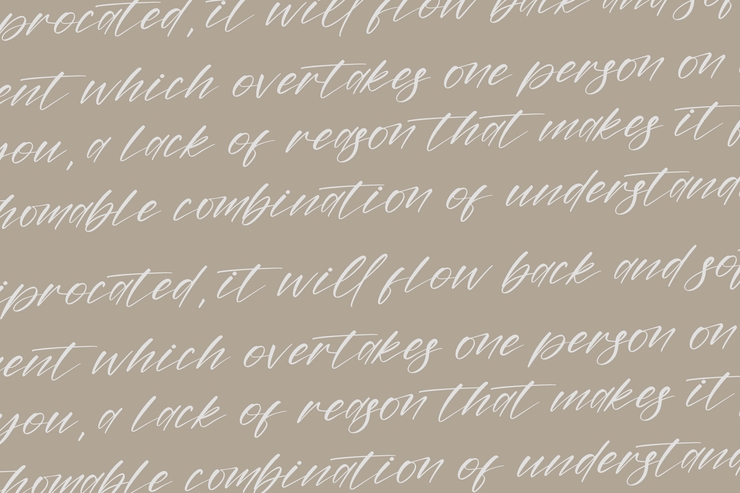 procated, it will flow back and sof
ent which overtakes one person on
you, a lack of reason that makes it
homable combination of understand
iprocated, it will flow back and sof
ent which overtakes one person on
you, a lack of reason that makes it
homable combination of understand